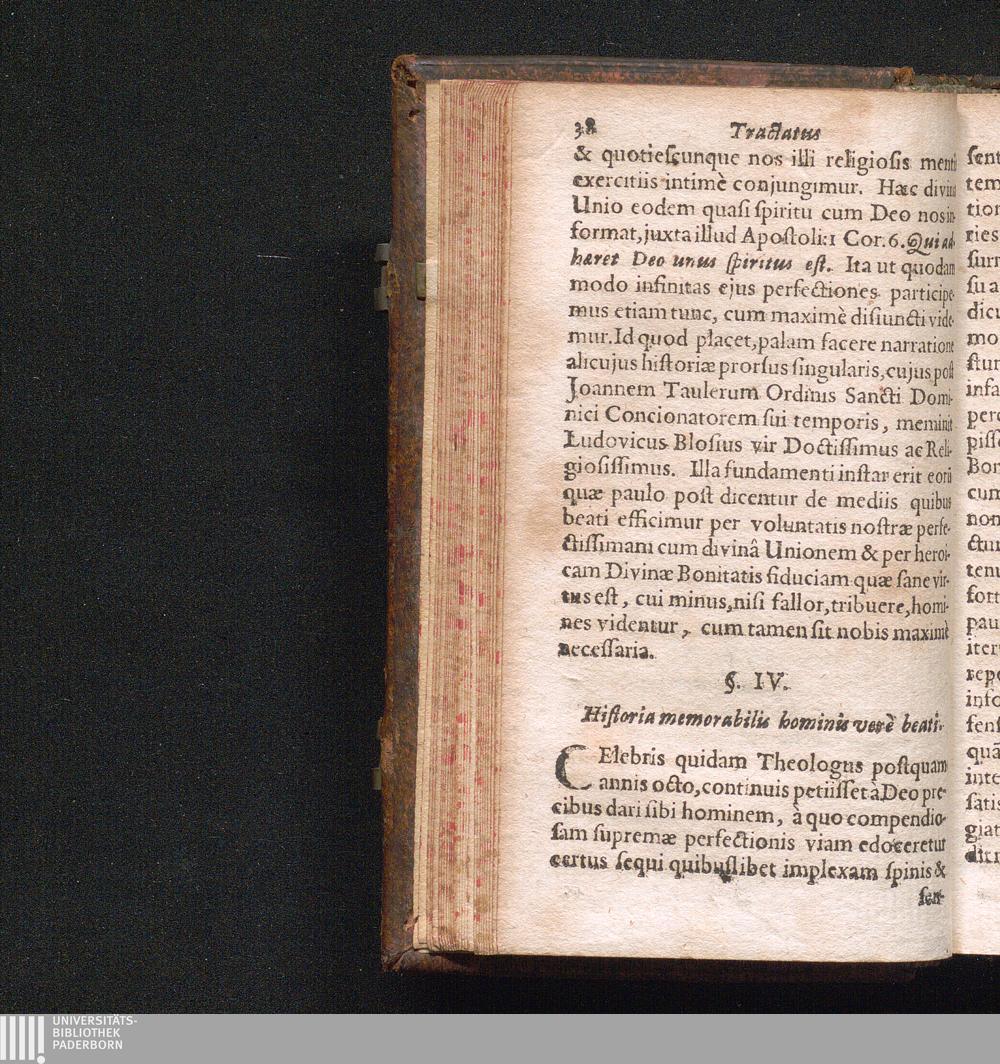 38 Tractatus
& quotieſcunque nos illi religioſis menti
exercitiis intimè conjungimur. Hæc divina
Unio eodem quaſi ſpiritu cum Deo nos in-
format, juxta illud Apoſtoli: 1 Cor. 6. Qui ad-
hæret Deo unus ſpiritus eſt. Ita ut quodam
modo infinitas ejus perfectiones participe-
mus etiam tunc, cum maximè diſiuncti vide-
mur. Id quod placet, palam facere narratione
alicujus hiſtoriæ prorſus ſingularis, cujus poſt
Joannem Taulerum Ordinis Sancti Domi-
nici Concionatorem ſui temporis, meminit
Ludovicus Bloſius vir Doctiſſimus ac Reli-
gioſiſſimus. Illa fundamenti inſtar erit eorũ
quæ paulo poſt dicentur de mediis quibus
beati efficimur per voluntatis noſtræ perfe-
ctiſſimam cum divinâ Unionem & per heroi-
cam Divinæ Bonitatis fiduciam quæ ſane vir-
tus eſt, cui minus, niſi fallor, tribuere, homi-
nes videntur, cum tamen ſit nobis maximè
neceſſaria.
§. IV.
Hiſtoria memorabilis hominis verè beati.
CElebris quidam Theologus poſtquam
annis octo, continuis petiiſſet à Deo pre-
cibus dari ſibi hominem, à quo compendio-
ſam ſupremæ perfectionis viam edoceretur
certus ſequi quibuſlibet implexam ſpinis &
ſen-
ſent
tem
tion
ries
ſurr
ſu a
dicu
mo
ſtur
infa
perc
piſſe
Bon
cum
non
ctur
tenu
fort
pau
iter
repe
info
ſenſ
quã
inte
ſatis
giat
UNIVERSITÄTS-
BIBLIOTHEK
PADERBORN